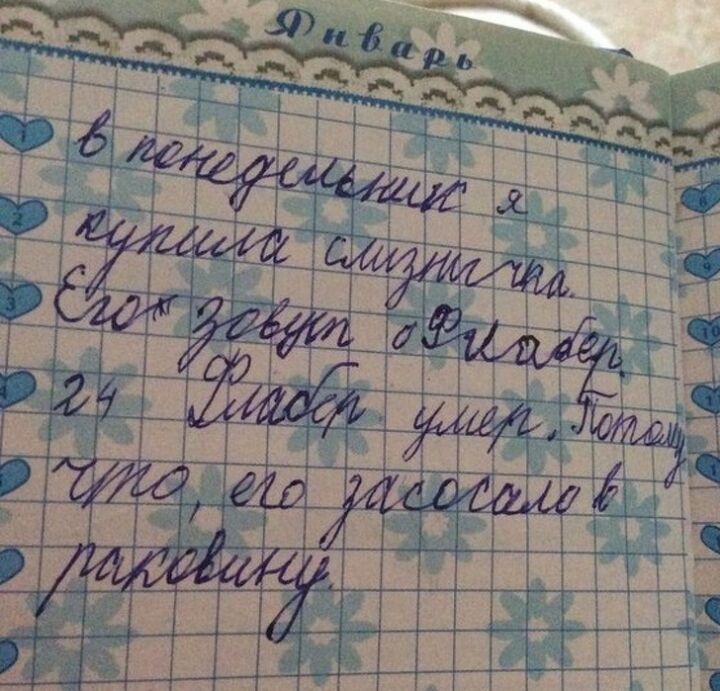 Январь
в понедельник я
купила слизнычка.
Его зовут Флабер.
24 Флабер умер. Потому
что, его засосало в
раковину.